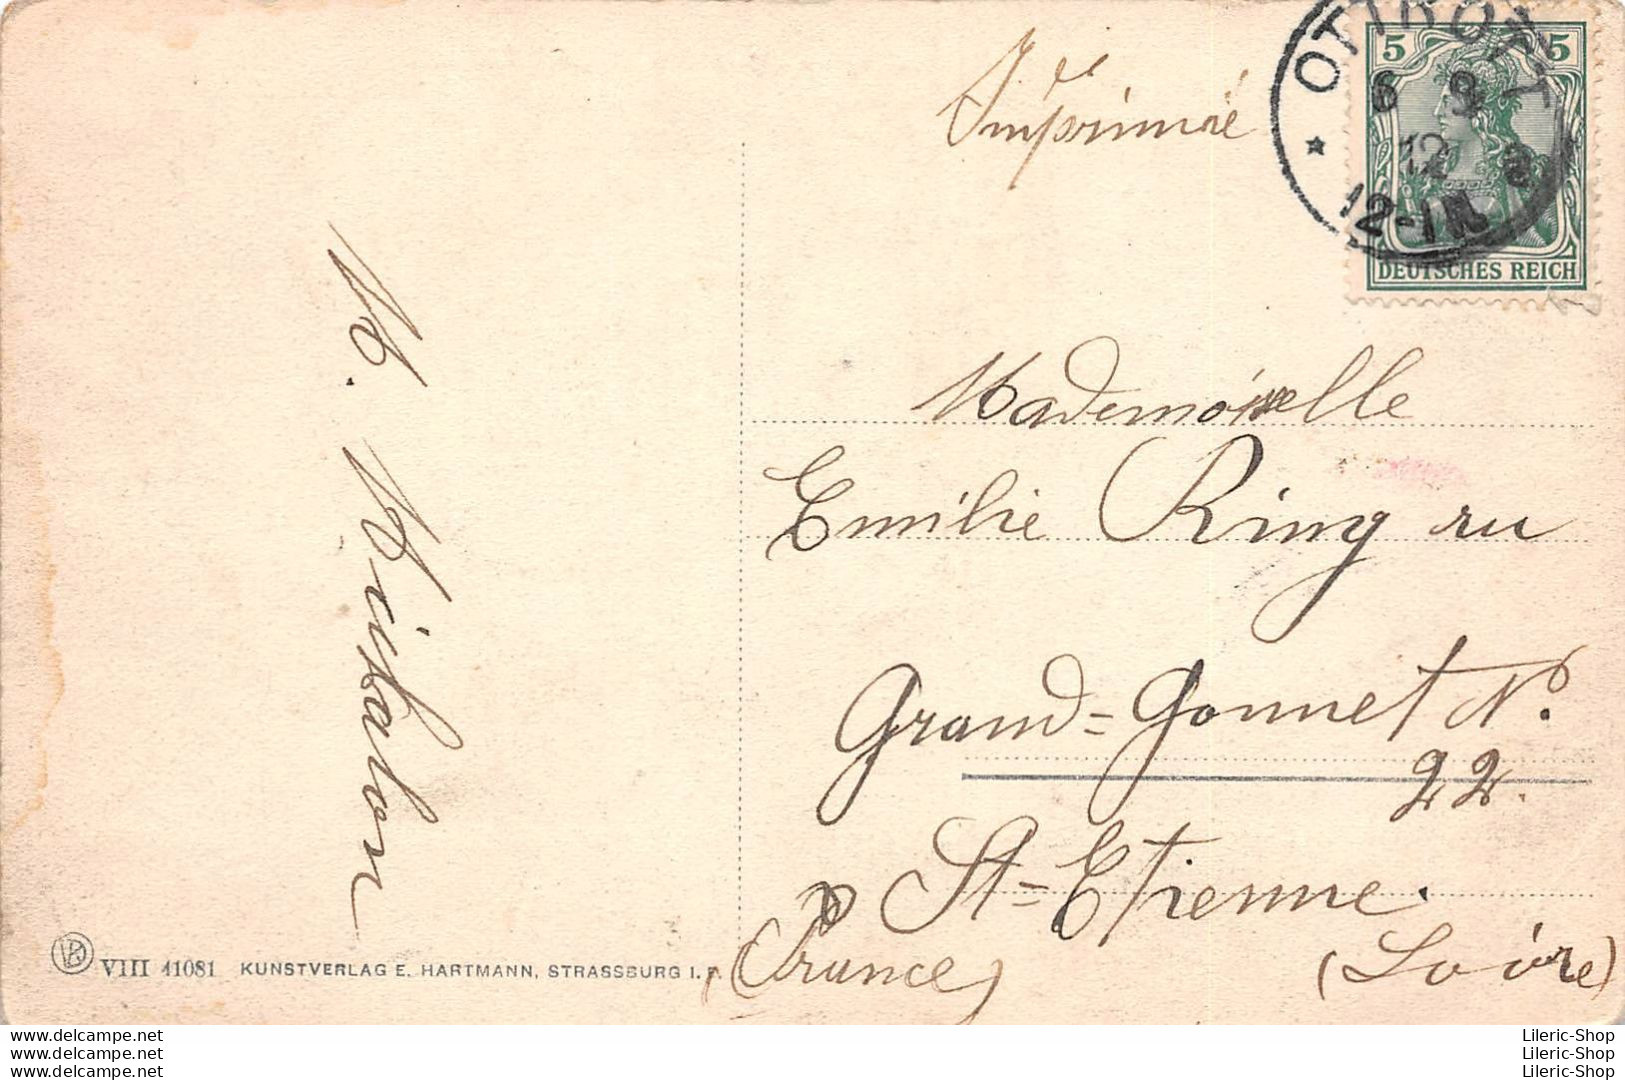 Imprimé
OTTROTT
6 9
12
12-1N
5 5
DEUTSCHES REICH
Mademoiselle
Emilie Ring ru
Grand=Gonnet N°.
22.
St=Etienne.
(France) (Loire)
VIII 41081 KUNSTVERLAG E. HARTMANN, STRASSBURG I.
lileric-shop.delcampe.net
lileric-shop.delcampe.net
lileric-shop.delcampe.net
Lileric-Shop
Lileric-Shop
Lileric-Shop